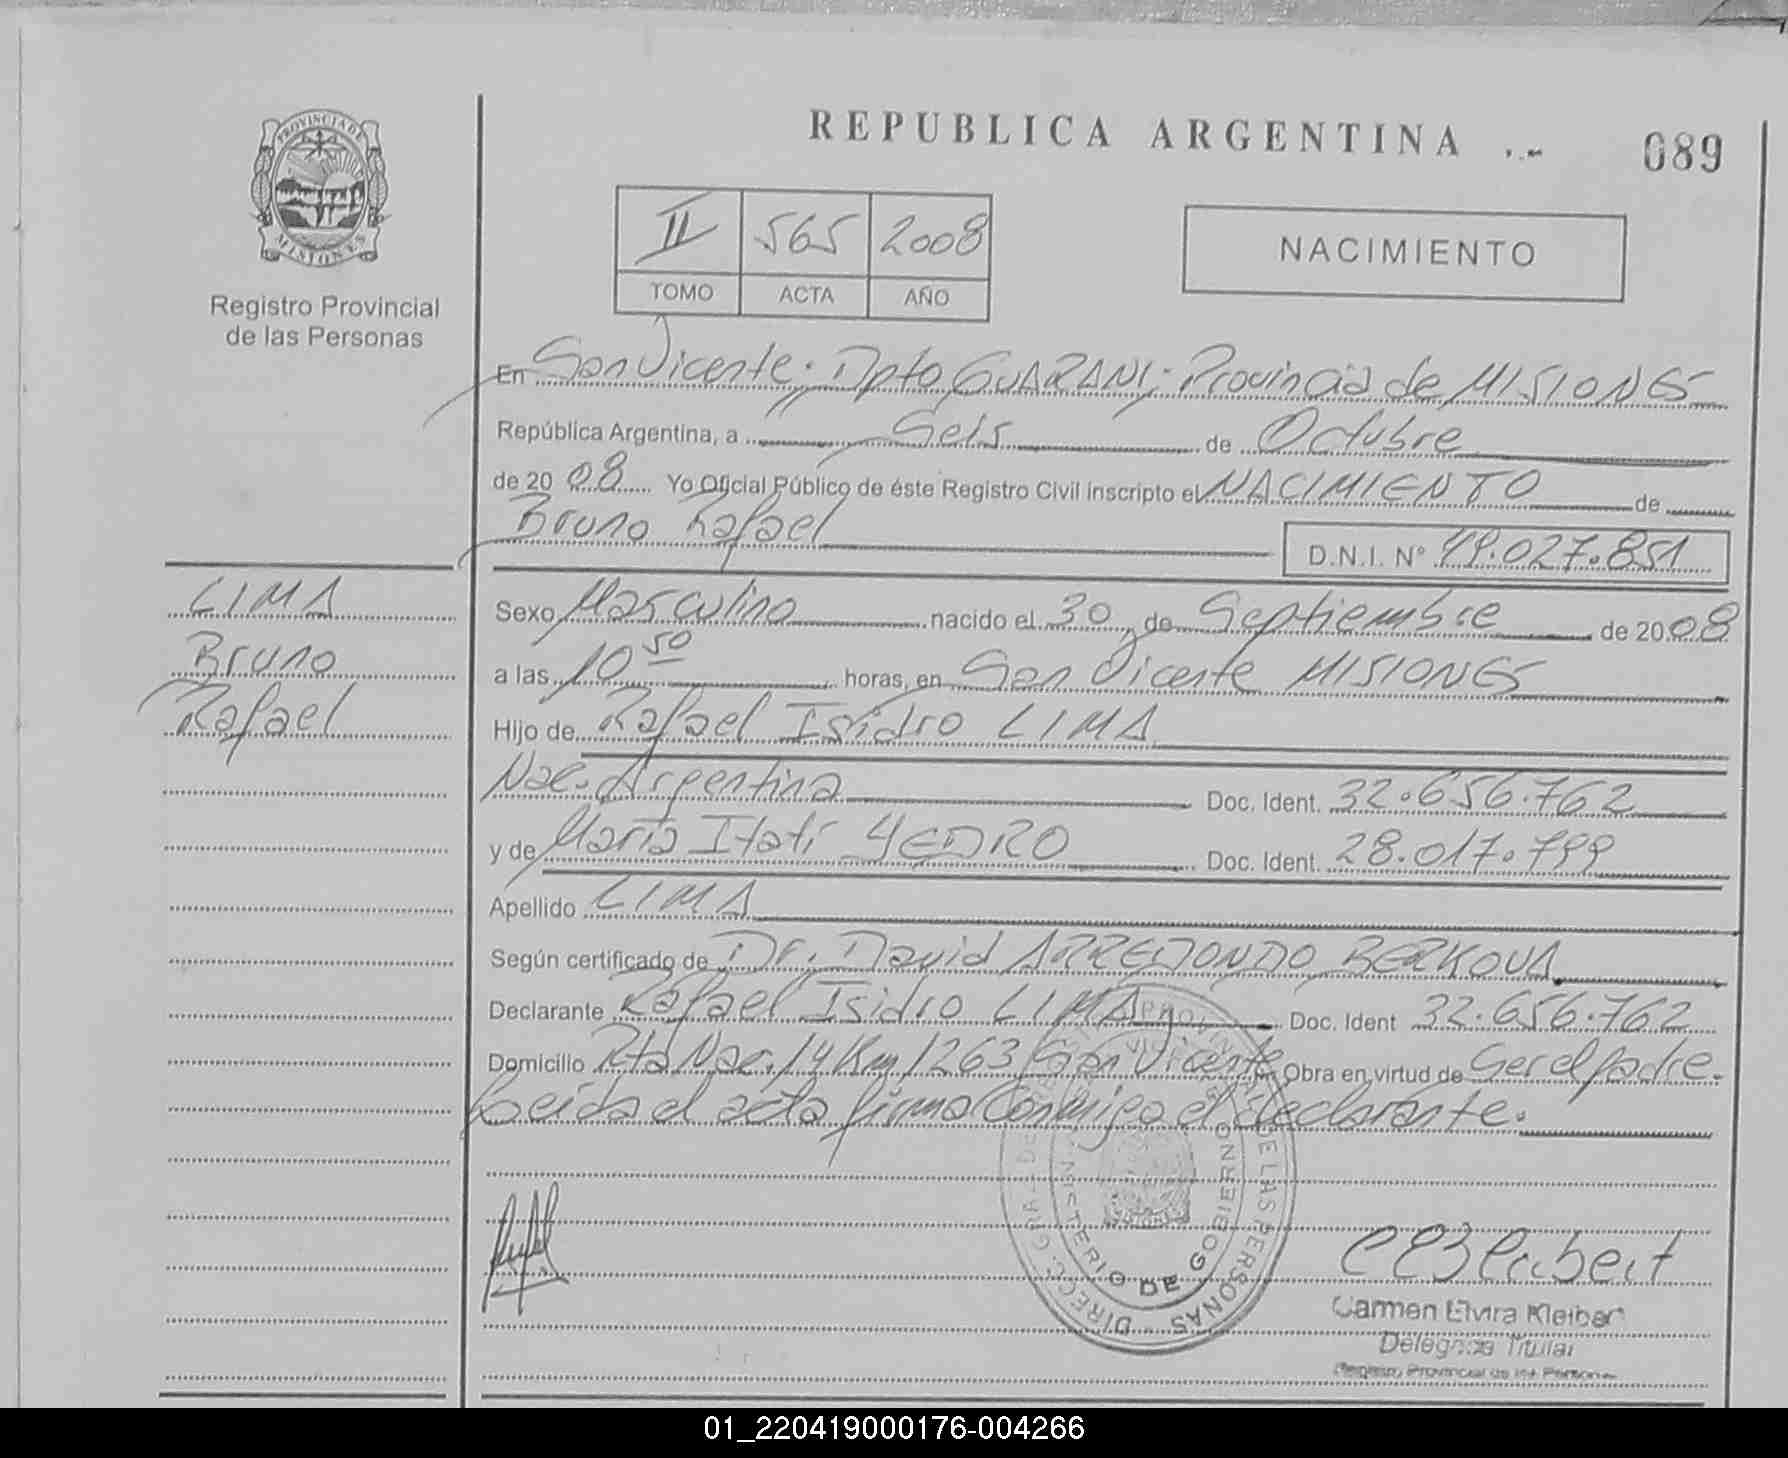 PROVINCIA DE
MISIONES
Registro Provincial
de las Personas
REPUBLICA ARGENTINA
089
II 565 2008
TOMO ACTA AÑO
NACIMIENTO
En San Vicente. Dpto GUARANI; Provincia de MISIONES
República Argentina, a Seis de Octubre
de 20 08 Yo Oficial Público de éste Registro Civil inscripto el NACIMIENTO de
Bruno Rafael D.N.I. N° 49.027.851
LIMA
Bruno
Rafael
Sexo Masculino nacido el 30 de Septiembre de 20 08
a las 10 50 horas, en San Vicente MISIONES
Hijo de Rafael Isidro LIMA
Nac. Argentina Doc. Ident. 32.656.762
y de María Itatí YEDRO Doc. Ident. 28.017.799
Apellido LIMA
Según certificado de Dr. David ARREDONDO BERKOVA
Declarante Rafael Isidro LIMA Doc. Ident 32.656.762
Domicilio Rta Nac. 14 Km 1263 San Vicente Obra en virtud de Ser el padre.
Leída el acta firma Conmigo el declarante.
MINISTERIO DE GOBIERNO
DE LAS PERSONAS - DIRECC. GRAL. DE
Carmen Elvira Kleiber
Delegada Titular
Registro Provincial de las Personas
01_220419000176-004266